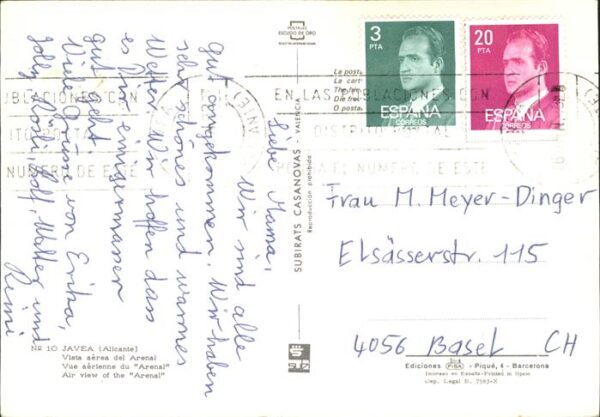 Liebe Mama,
Wir sind alle
gut angekommen. Wir haben
sehr schönes und warmes
Wetter. Wir hoffen dass
es Dir einigermassen
gut geht
Viele Grüsse von Erika,
Rolf, Walter und
Rini
POSTALES
ESCUDO DE ORO
3
PTA
ESPAÑA
CORREOS
20
PTA
ESPAÑA
CORREOS
EN LAS POBLACIONES CON
DISTRITO POSTAL
PONGA EL NUMERO DE ESTE
La posta
La carte
The
Die
O posta
SUBIRATS CASANOVAS - VALENCIA
Reproducción prohibida
Frau M. Meyer-Dinger
Elsässerstr. 115
4056 Basel CH
Nº 10 JAVEA (Alicante)
Vista aérea del Arenal
Vue aérienne du "Arenal"
Air view of the "Arenal"
Ediciones FISA - Piqué, 4 - Barcelona
Impreso en España-Printed in Spain
Dep. Legal B. 7593-X